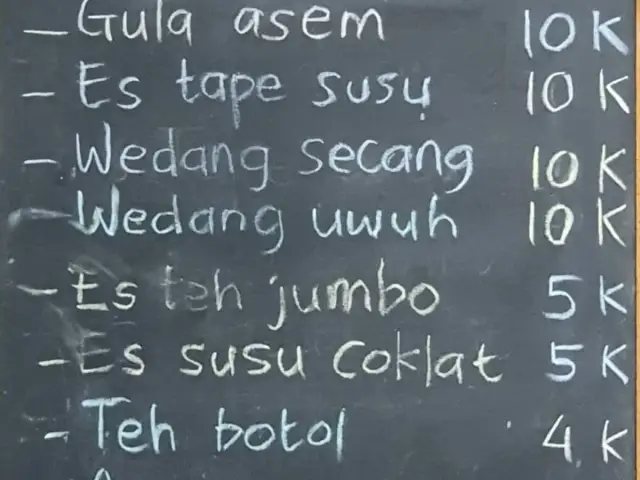 - Gula asem 10 K
- Es tape susu 10 K
- Wedang secang 10 K
- Wedang uwuh 10 K
- Es teh jumbo 5 K
- Es susu coklat 5 K
- Teh botol 4 K